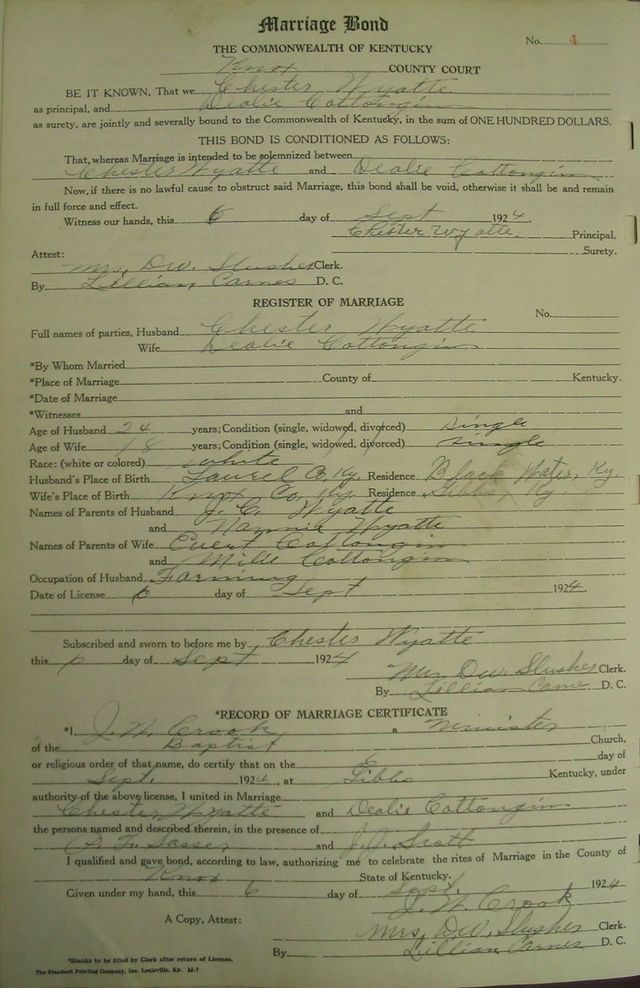 Marriage Bond
No. 4
THE COMMONWEALTH OF KENTUCKY
Knox COUNTY COURT
BE IT KNOWN, That we Chester Wyatte
as principal, and Dealie Cottongin
as surety, are jointly and severally bound to the Commonwealth of Kentucky, in the sum of ONE HUNDRED DOLLARS.
THIS BOND IS CONDITIONED AS FOLLOWS:
That, whereas Marriage is intended to be solemnized between
Chester Wyatte and Dealie Cottongin
Now, if there is no lawful cause to obstruct said Marriage, this bond shall be void, otherwise it shall be and remain
in full force and effect.
Witness our hands, this 6 day of Sept 1924
Chester Wyatte Principal.
Surety.
Attest:
Mrs. DW. Slusher Clerk.
By Lillian Carnes D. C.
REGISTER OF MARRIAGE
No.
Full names of parties, Husband Chester Wyatte
Wife Dealie Cottongin
*By Whom Married
*Place of Marriage County of Kentucky.
*Date of Marriage
*Witnesses and
Age of Husband 24 years; Condition (single, widowed, divorced) single
Age of Wife 18 years; Condition (single, widowed, divorced) single
Race: (white or colored) white
Husband's Place of Birth Laurel Co, Ky. Residence Black Water, Ky.
Wife's Place of Birth Knox Co, Ky. Residence Ky
Names of Parents of Husband J. C. Wyatte
and Nannie Wyatte
Names of Parents of Wife Evert Cottongin
and Milie Cottongin
Occupation of Husband Farming
Date of License 6 day of Sept 1924.
Subscribed and sworn to before me by Chester Wyatte
this 6 day of Sept 1924
Mrs DW. Slusher Clerk.
By Lillian Carnes D. C.
*RECORD OF MARRIAGE CERTIFICATE
*I, J. W. Crook a Minister
of the Baptist Church,
or religious order of that name, do certify that on the 6 day of
Sept. 1924, at Kentucky, under
authority of the above license, I united in Marriage
Chester Wyatte and Dealie Cottongin
the persons named and described therein, in the presence of
Sasser and J. D. Scott
I qualified and gave bond, according to law, authorizing me to celebrate the rites of Marriage in the County of
Knox State of Kentucky.
Given under my hand, this 6 day of Sept. 1924
J. W. Crook
A Copy, Attest: Mrs, DW, Slusher Clerk.
By Lillian Carnes D. C.
*Blanks to be filled by Clerk after return of License.
The Standard Printing Company, Inc. Louisville, Ky. M-7